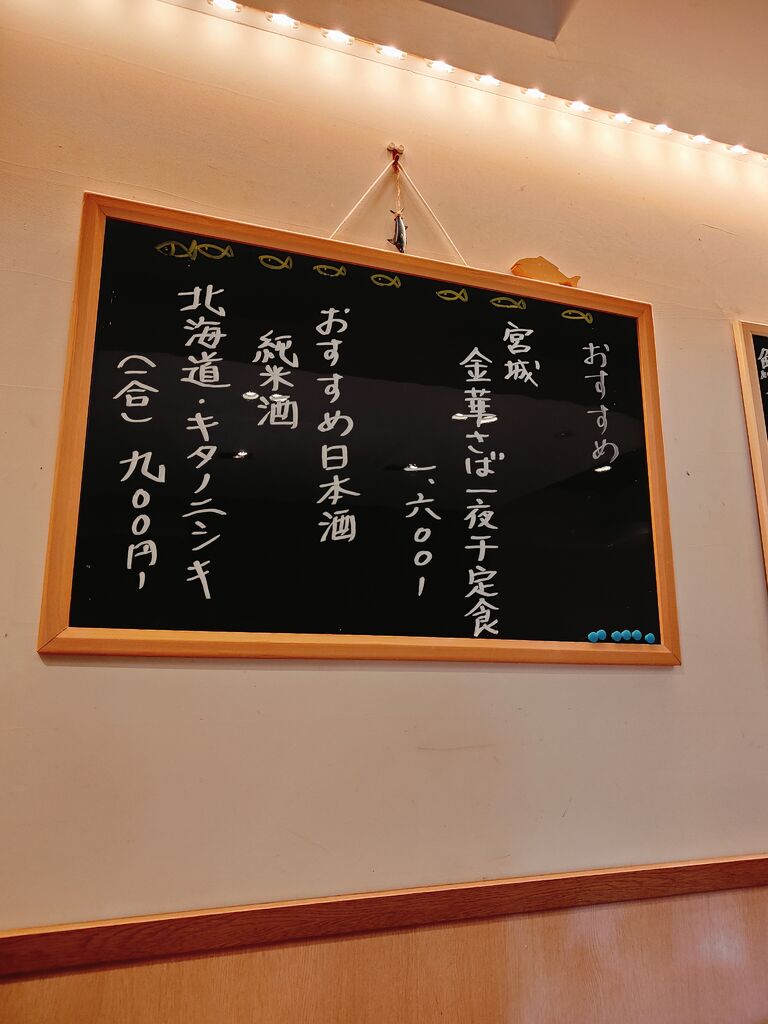 おすすめ
宮城
金華さば一夜干定食
一、六〇〇ー
おすすめ日本酒
純米酒
北海道・キタノニシキ
(一合) 九〇〇円ー